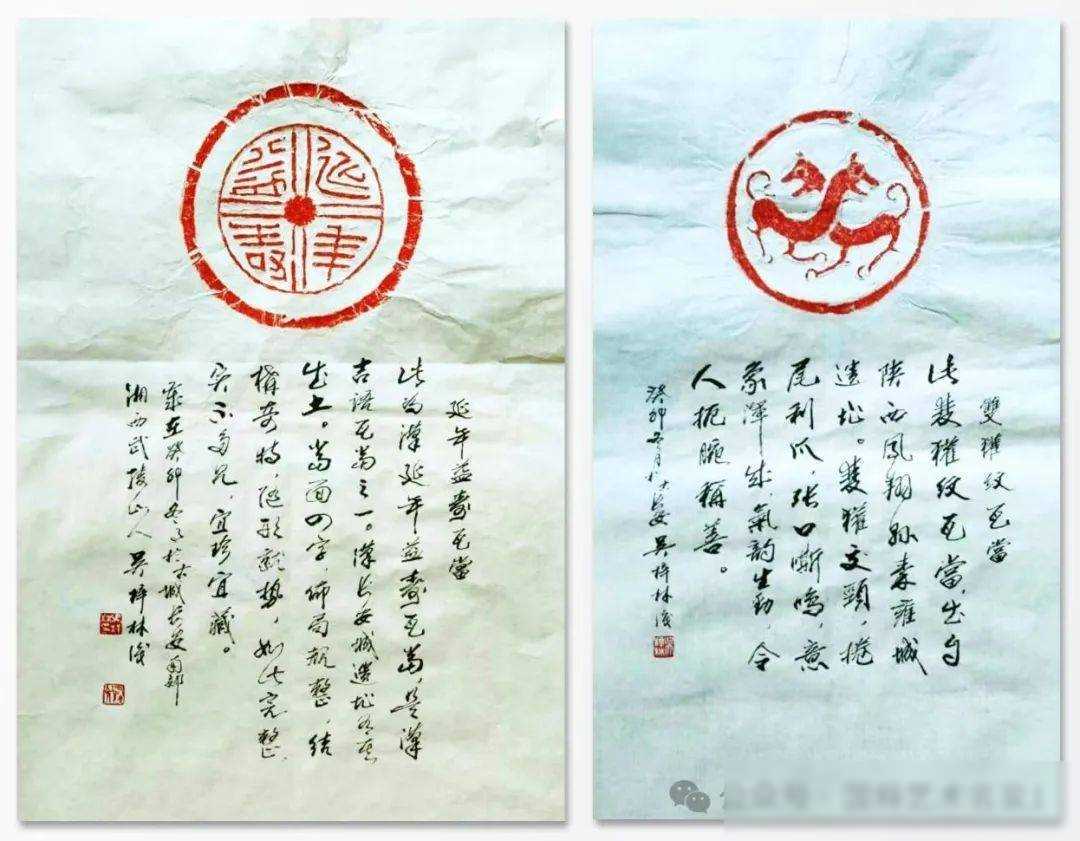 延年益壽
延年益壽瓦當
此為漢延年益壽瓦當，是漢
吉語瓦當之一。漢長安城遺址
出土。當面四字，佈局規整，結
構奇特，隨形就勢，如此完整
實不多見，宜珍宜藏。
歲在癸卯冬月於古城長安南郊
湘西武陵山人吳梓林識
雙獾紋瓦當
此雙獾紋瓦當，出自
陝西鳳翔縣秦雍城
遺址。雙獾交頸，捲
尾利爪，張口嘶鳴，意
象渾成，氣韵生動，令
人扼腕稱善。
癸卯冬月於長安吳梓林識
公众号